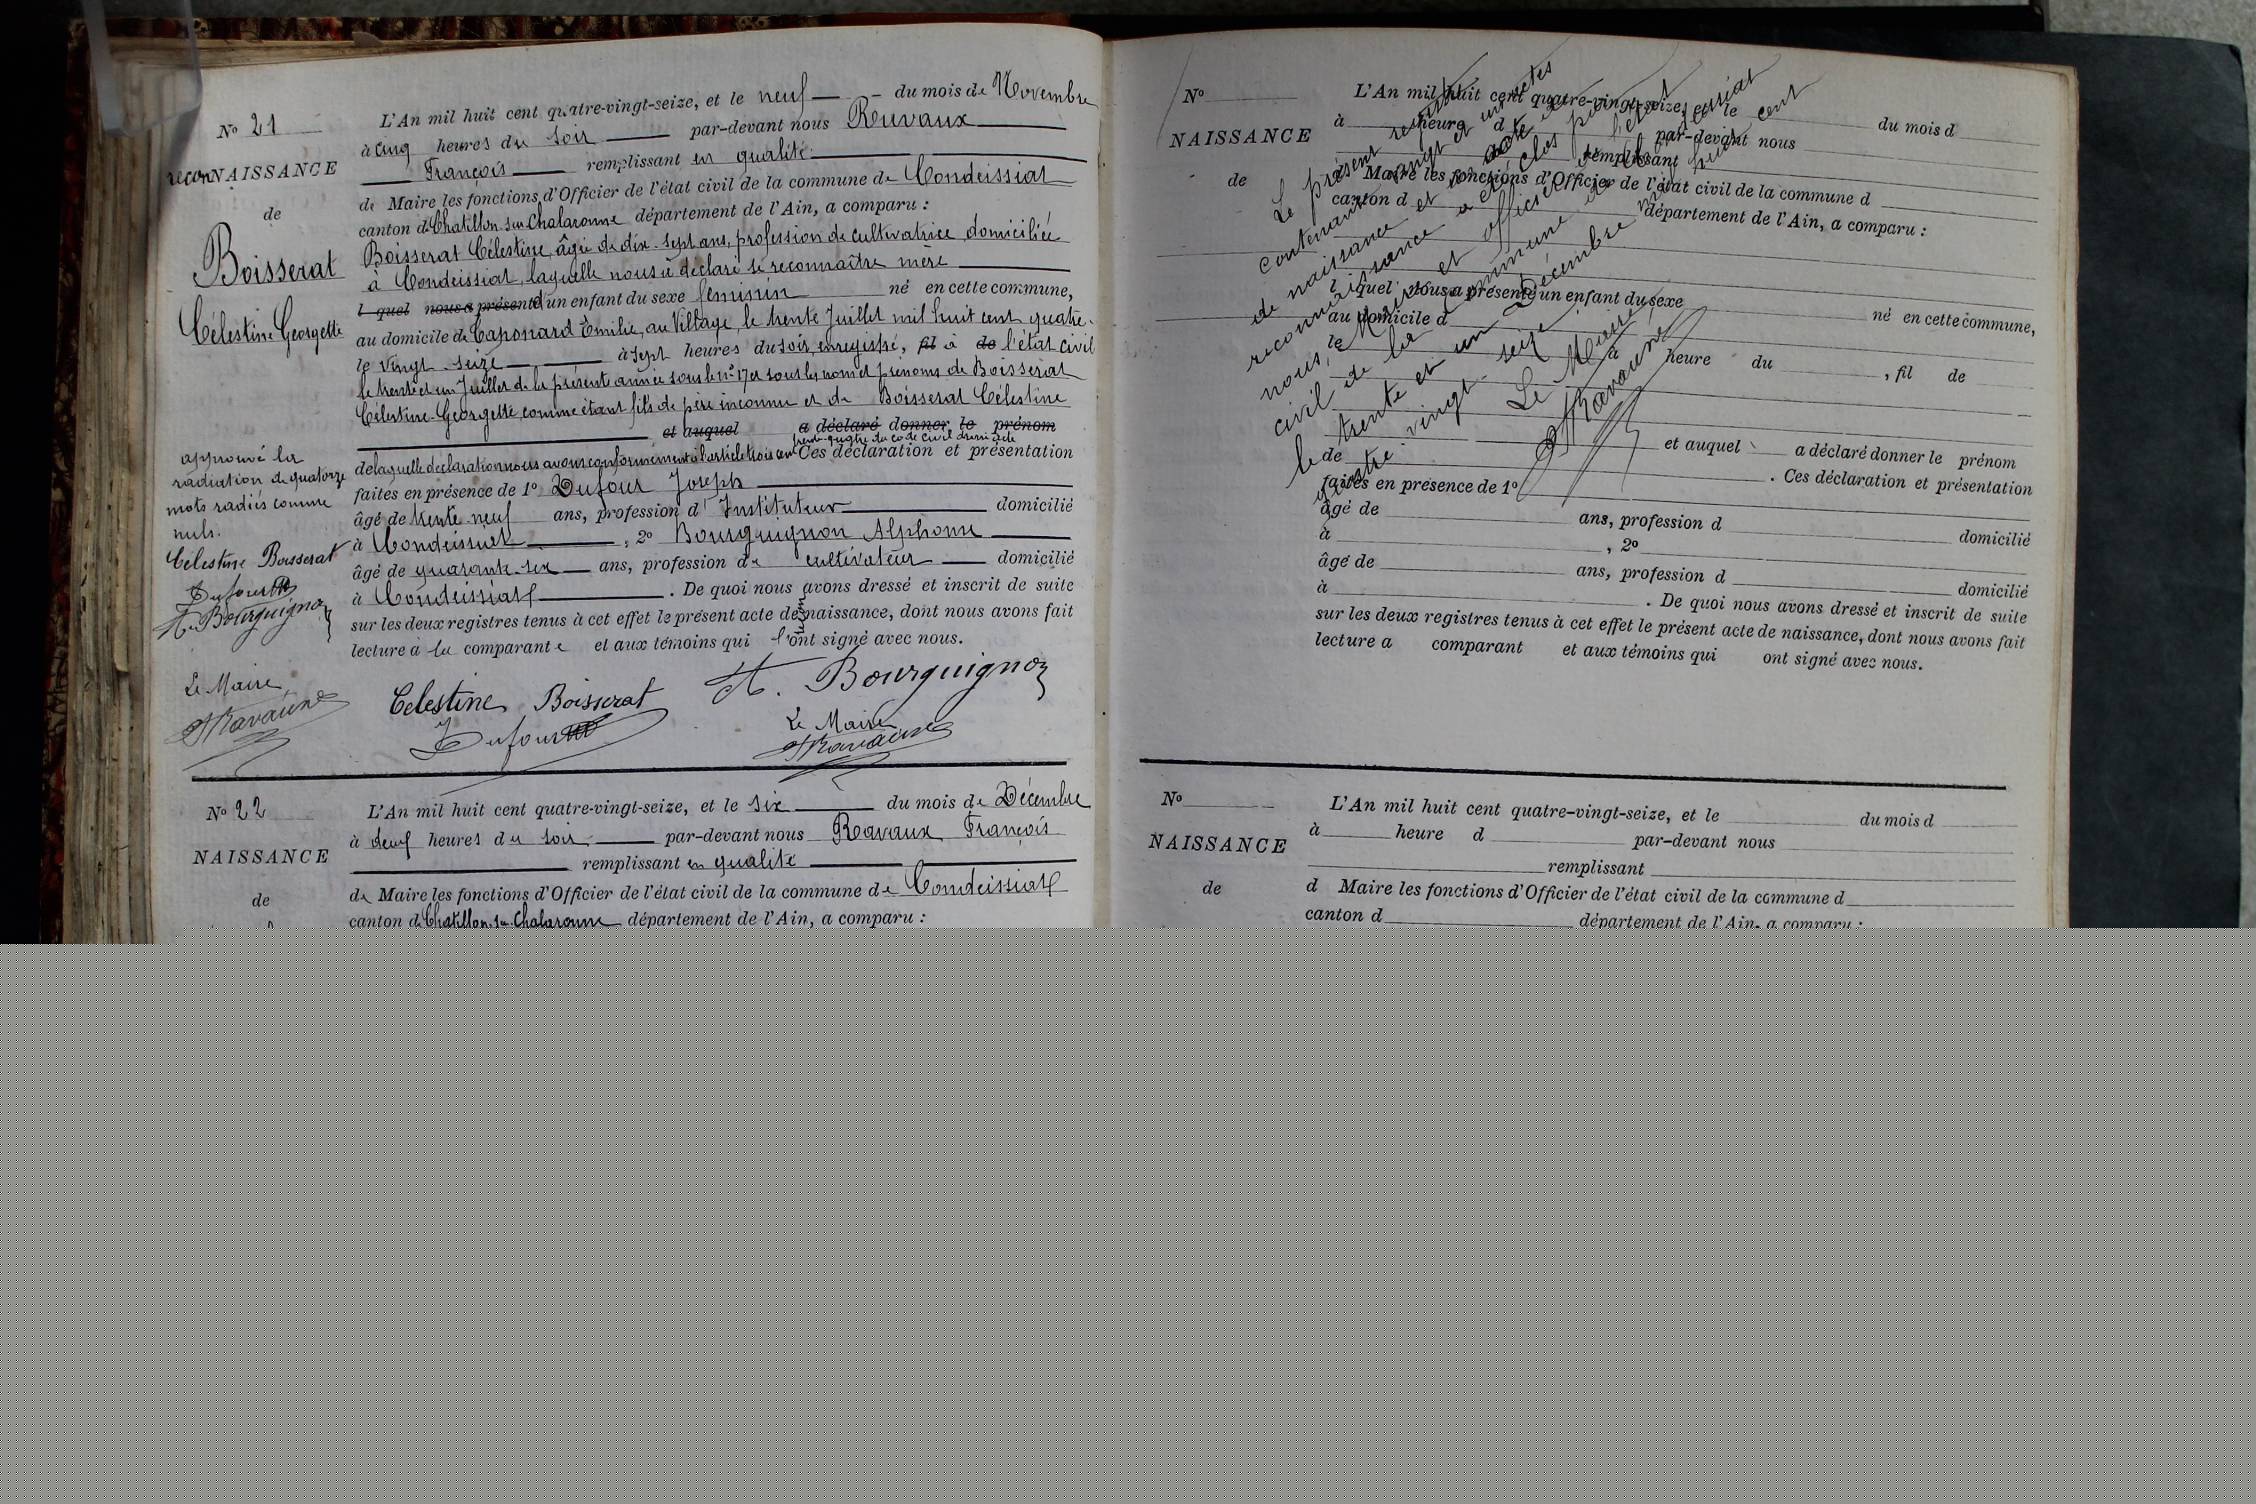 Nº 21
reconNAISSANCE
de
Boisserat
Célestine Georgette
approuvé la
radiation de quatorze
mots radiés comme
nuls.
Célestine Boisserat
Dufour
A. Bourguignon
Le Maire
FRavaux
L'An mil huit cent quatre-vingt-seize, et le neuf du mois de Novembre
à cinq heures du soir par-devant nous Ravaux
François remplissant en qualité
de Maire les fonctions d'Officier de l'état civil de la commune de Condeissiat
canton de Chatillon sur Chalaronne département de l'Ain, a comparu :
Boisserat Célestine, âgé de dix-sept ans, profession de cultivatrice domiciliée
à Condeissiat, laquelle nous a déclaré se reconnaître mère
l quel nous a présenté d'un enfant du sexe féminin né en cette commune,
au domicile de Caponard Émilie, au Village, le trente Juillet mil huit cent quatre-
le vingt-seize à sept heures du soir, enregistré, fil à de l'état civil
le trente et un Juillet de la présent année sous le nº 17 et sous les nom et prénoms de Boisserat
Célestine Georgette, comme étant fils de père inconnu et de Boisserat Célestine
et auquel a déclaré donner le prénom
trente-quatre du code civil
de laquelle déclaration nous avons conformément à l'article trois cent Ces déclaration et présentation
faites en présence de 1º Dufour Joseph
âgé de trente neuf ans, profession d'Instituteur domicilié
à Condeissiat, 2º Bourguignon Alphonse
âgé de quarante-six ans, profession de cultivateur domicilié
à Condeissiat. De quoi nous avons dressé et inscrit de suite
sur les deux registres tenus à cet effet le présent acte de naissance, dont nous avons fait
lecture a la comparante et aux témoins qui l'ont signé avec nous.
Célestine Boisserat A. Bourguignon
Dufour
Le Maire
FRavaux
Nº 22
NAISSANCE
de
L'An mil huit cent quatre-vingt-seize, et le six du mois de Décembre
à neuf heures du soir par-devant nous Ravaux François
remplissant en qualité
de Maire les fonctions d'Officier de l'état civil de la commune de Condeissiat
canton de Chatillon-sur-Chalaronne département de l'Ain, a comparu :
Nº
NAISSANCE
de
L'An mil huit cent quatre-vingt-seize, et le du mois d
à heure d par-devant nous
remplissant
d Maire les fonctions d'Officier de l'état civil de la commune d
canton d département de l'Ain, a comparu :
l quel nous a présenté un enfant du sexe né en cette commune,
au domicile d
le à heure du , fil de
et auquel a déclaré donner le prénom
de . Ces déclaration et présentation
faites en présence de 1º
âgé de ans, profession d domicilié
à , 2º
âgé de ans, profession d domicilié
à . De quoi nous avons dressé et inscrit de suite
sur les deux registres tenus à cet effet le présent acte de naissance, dont nous avons fait
lecture a comparant et aux témoins qui ont signé avec nous.
Le présent registre
contenant vingt et un actes
de naissance et un acte de
reconnaissance a été clos par
nous, Maire et officier de l'état
civil de la commune de Condeissiat
le trente et un Décembre mil huit cent
quatre-vingt-seize.
Le Maire,
FRavaux
Nº
NAISSANCE
de
L'An mil huit cent quatre-vingt-seize, et le du mois d
à heure d par-devant nous
remplissant
d Maire les fonctions d'Officier de l'état civil de la commune d
canton d département de l'Ain, a comparu :